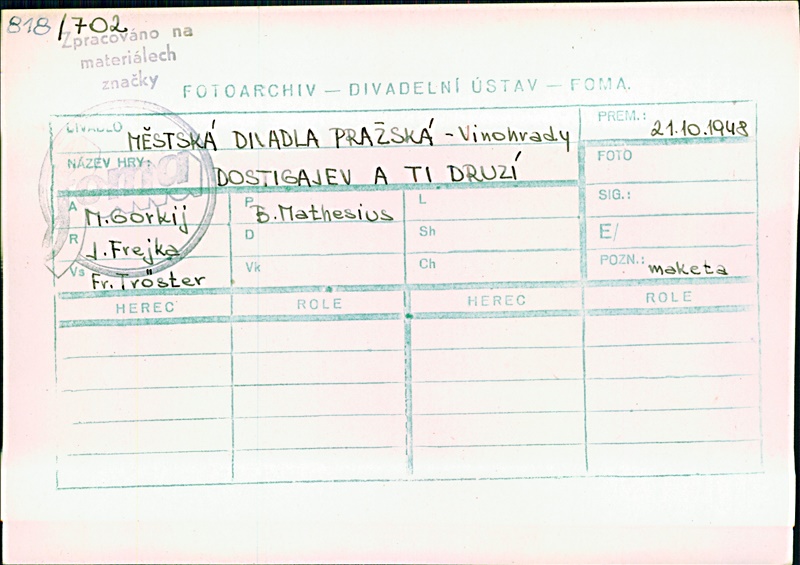 818/702
Zpracováno na
materiálech
značky
foma
FOTOARCHIV — DIVADELNÍ ÚSTAV — FOMA.
DIVADLO MĚSTSKÁ DIVADLA PRAŽSKÁ - Vinohrady
PREM.: 21.10.1948
NÁZEV HRY: DOSTIGAJEV A TI DRUZÍ
FOTO
A M. Gorkij
P B. Mathesius
L
SIG.:
R J. Frejka
D
Sh
E/
Vs Fr. Tröster
Vk
Ch
POZN.: maketa
HEREC ROLE HEREC ROLE